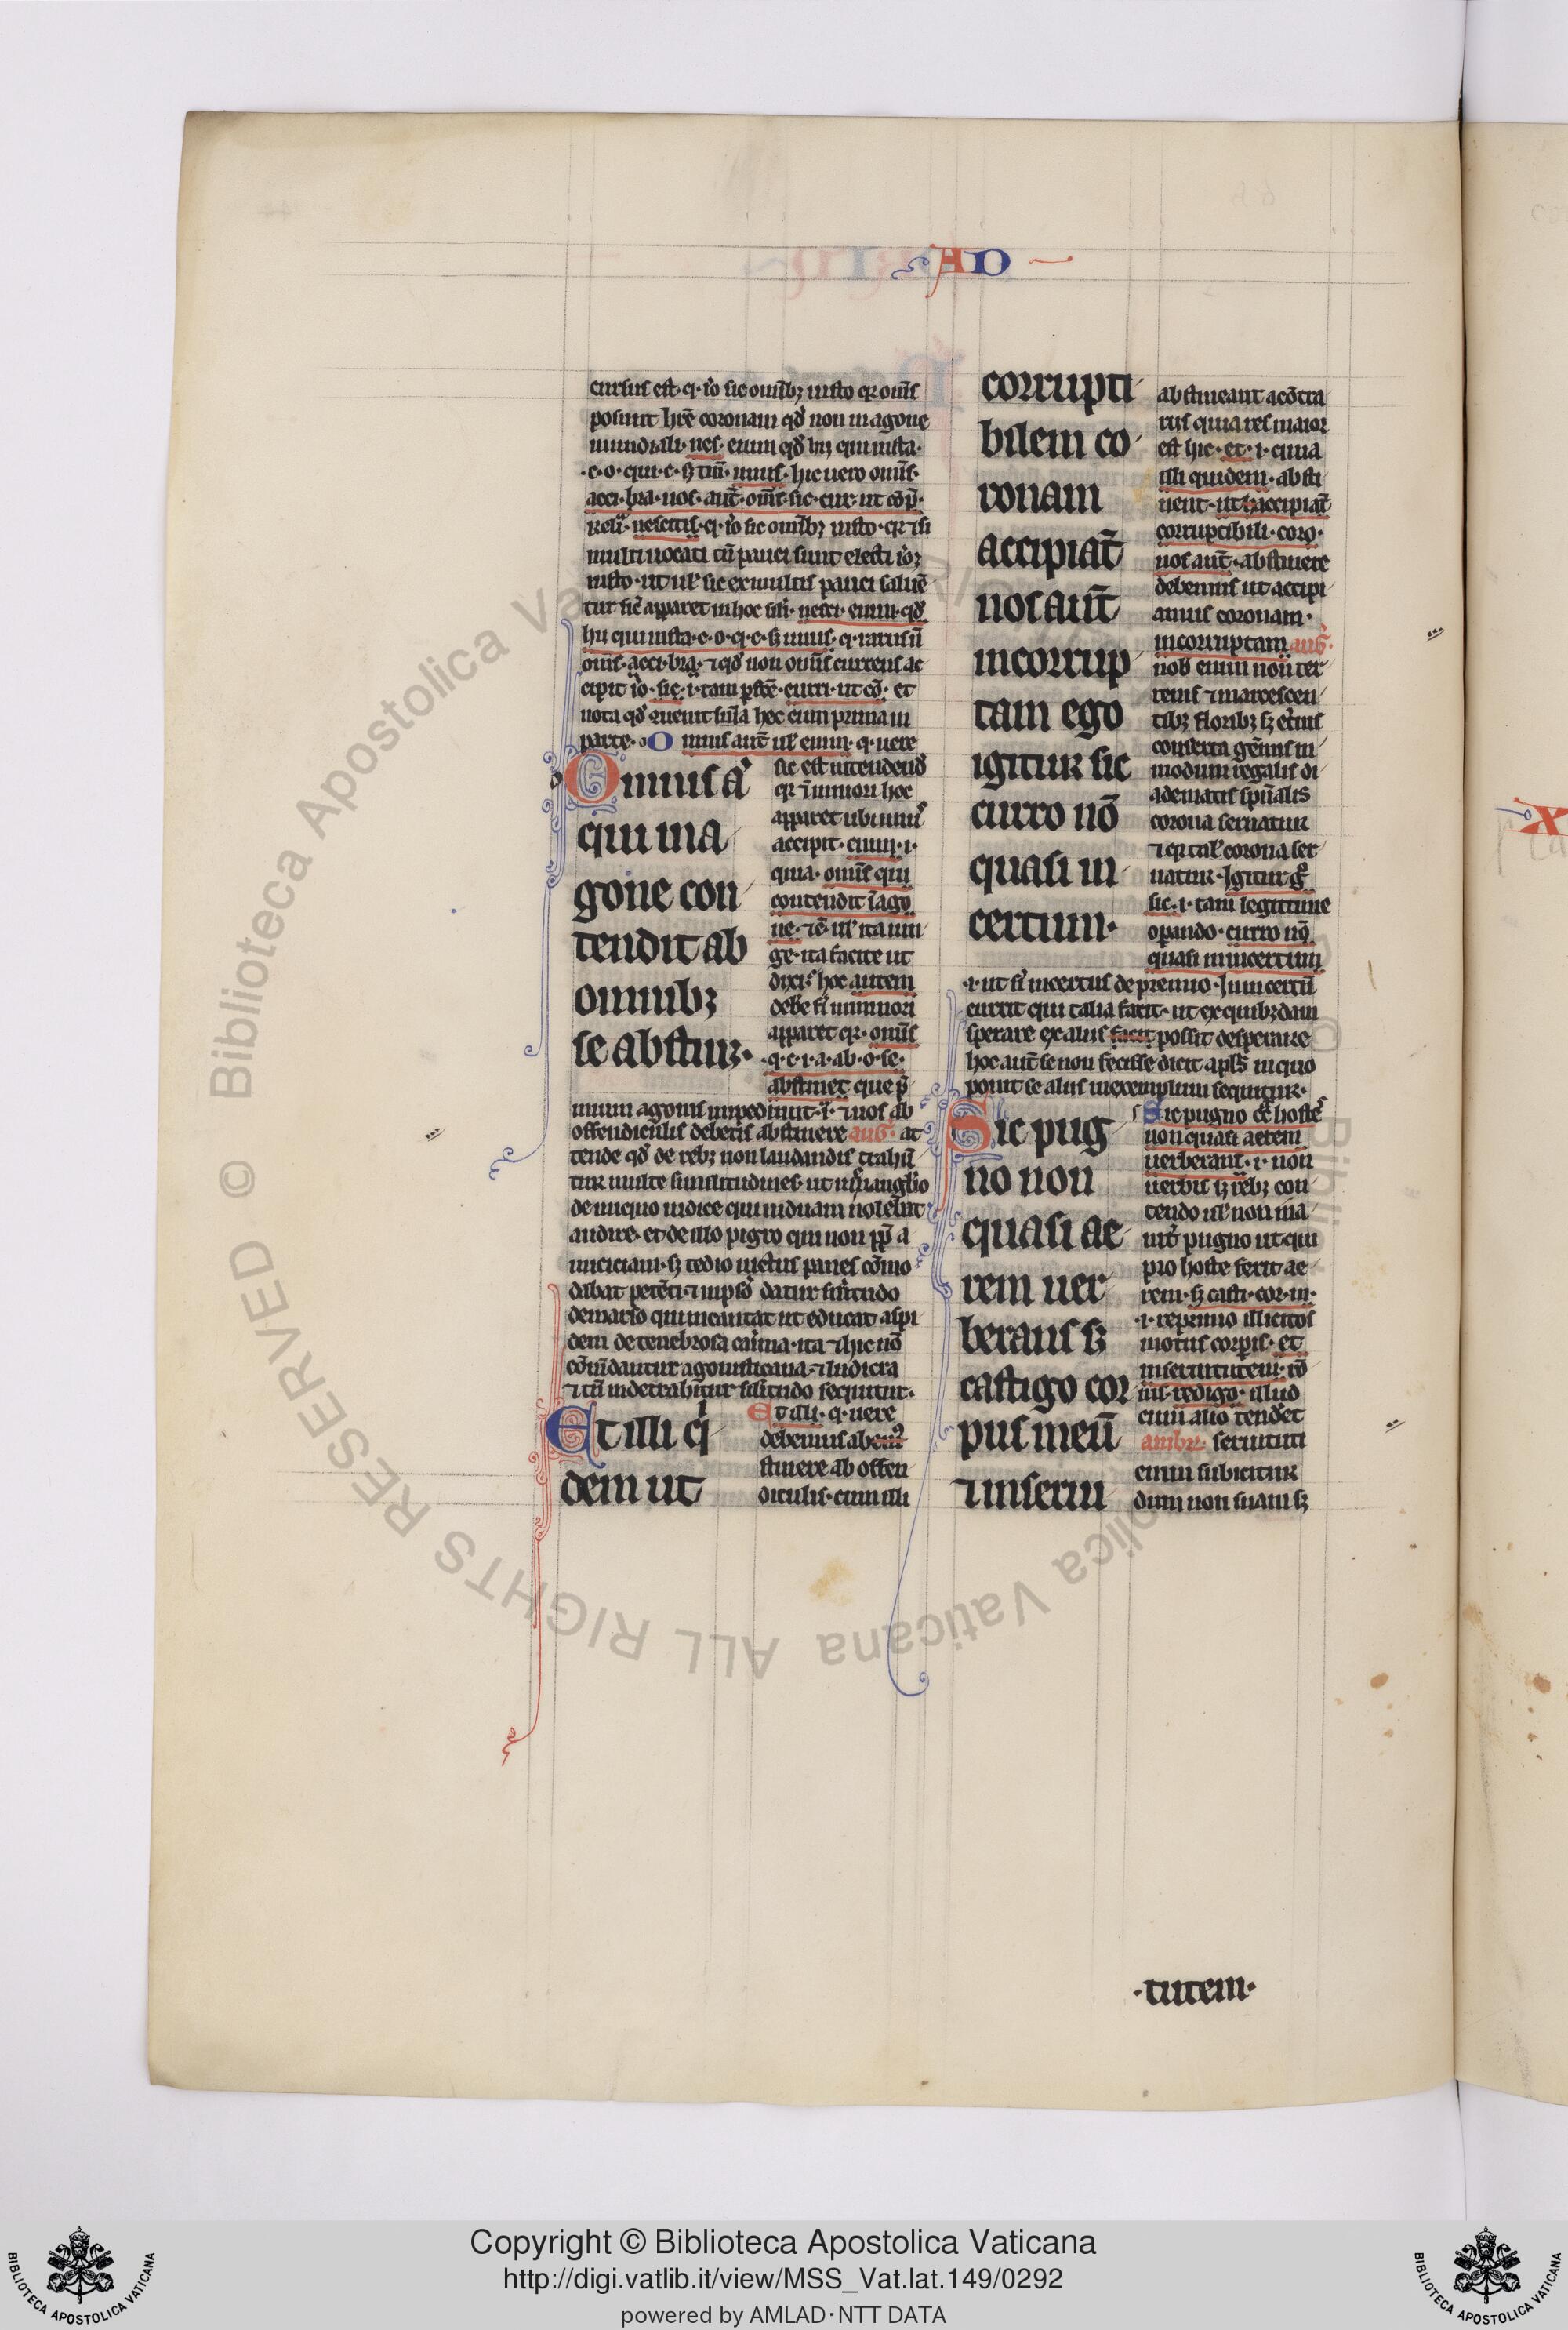 AD
cursus est· q· io sic omībꝫ iusto qꝛ om̄s
possunt hr̄e coronam qd̕ non in agone
mundiali· nes· enim qd̕ hij qui insta·
·c·o· qui·c· sꝫ tm̄· unus· hic uero omīs·
acci· bra· uos· aut̄· om̄s· sic· cur· ut cō̄p̄·
nescitis· q· io sic omībꝫ iusto· qꝛ ⁊ si
multi uocati tn̄ pauci sunt electi
iusto· ut ul̕ sic ex multis pauci saluē
tur sic̄ apparet in hoc sil̕i· nesci· enim· qd̕
hij qui insta·c·o·q·c·s· unus· q· rarus
omīs· acci· bra· ⁊ qd̕ non omīs currens ac
cipit io· sic· i· tam ꝑfc̄e· curri· ut cō̄· et
nota qd̕ ꝯuenit hoc cum prima in
parte· O mnis aut̄ ul̕ enim· q· uere
Omnis a̕
qui in a
gone con
tendit ab
omnibꝫ
se abstinꝫ·
sic est intendend̕
qꝛ ⁊ in minori hoc
apparet ubi unus̕
accipit· enim· i·
quia· omīs qui
contendit ī ago
ne· ⁊c̄· ul̕ ita iun
ge· ita facite ut
dixi· hoc autem
debe̅ fi̕ in minori
apparet qꝛ· omīs
·q·c·i·a· ab·o· se·
abstinet que p̄
mium agonis impediunt· i· ⁊ uos ab
offendiculis debetis abstinere aug̕· at
tende qd̕ de rebꝫ non laudandis trahū
tur iuste similitudines· ut in euanglio
de iniquo iudice qui uiduam nolebat
audire· et de illo pigro qui non ꝓp̄ a
miciciam· sꝫ tedio uictus panes cōmo
dabat petēti· ⁊ in ip̄o datur silitudo
de marso qui incantat ut educat aspi
dem de tenebrosa cauerna· ita ⁊ hic nō
cōmēdantur agonisticana· ⁊ ludicra
⁊ tn̄ inde trahitur silitudo sequitur·
Et illi q̕i
dem ut
Et illi· q· uere
debemus ab
stinere ab offen
diculis· cum illi
corrupti
bilem co
ronam
accipiat̄
nos aut̄
incorrup
tam ego
igitur sic
curro nō
quasi in
certum·
abstineant a cōtra
riis quia res maior
est hic· et· i· quia
illi quidem· absti
nent· ut accipiāt
corruptibili· coro·
nos aut̄· abstinere
debemus ut accipi
amus coronam·
incorruptam aug̕·
nob̕ enim non ter
renis ⁊ marcescen
tibꝫ floribꝫ sꝫ et̕nis
conserta gēmis in
modum regalis di
adematis spūalis
corona seruatur
⁊ qꝛ tal̕ corona ser
uatur· Igitur g̊
sic· i· tam legittime
oꝑando· curro nō
quasi in incertum
·i· ut si̕ incertus de premio· In incertū
currit qui talia facit· ut ex quibꝫdam
sperare ex aliis facit possit desperare
hoc aut̄ se non fecisse dicit apl̕s in quo
ponit se aliis in exemplum sequitur·
Sic pug
no non
quasi ae
rem uer
berans sꝫ
castigo cor
pus meū
⁊ in serui
Sic pugno cōt̄ hoste̕
non quasi aerem
uerberans· i· non
uerbis sꝫ rebꝫ con
tendo ul̕ non ina
nit̕ pugno ut qui
pro hoste ferit ae
rem· sꝫ casti· cor· m·
·i· reprimo illicitos
motus corꝑis· et
in seruitutem· rō
nis· redigo· illud
enim alio tendēt
ambr̄· seruituti
enim subicitur
dum non suam sꝫ
·tutem·
Copyright © Biblioteca Apostolica Vaticana
http://digi.vatlib.it/view/MSS_Vat.lat.149/0292
powered by AMLAD·NTT DATA
BIBLIOTECA APOSTOLICA VATICANA
BIBLIOTECA APOSTOLICA VATICANA
© Biblioteca Apostolica Vaticana ALL RIGHTS RESERVED